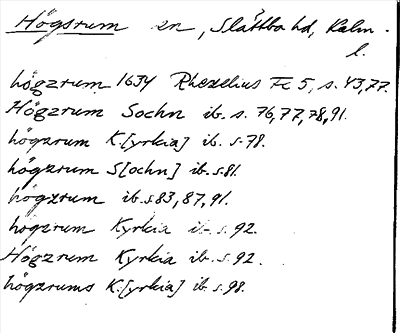 Högsrum sn, Slättbo hd, Kalm.
l.
högzrum 1634 Rhezelius Fc 5, s. 43,77.
Högzrum Sochn ib. s. 76,77,78,91.
högzrum K.[yrkia] ib. s. 78.
högzrum S[ochn] ib. s. 81.
högzrum ib. s. 83, 87, 91.
högzrum Kyrkia ib. s. 92.
Högzrum Kyrkia ib. s. 92.
högzrums K.[yrkia] ib. s. 98.